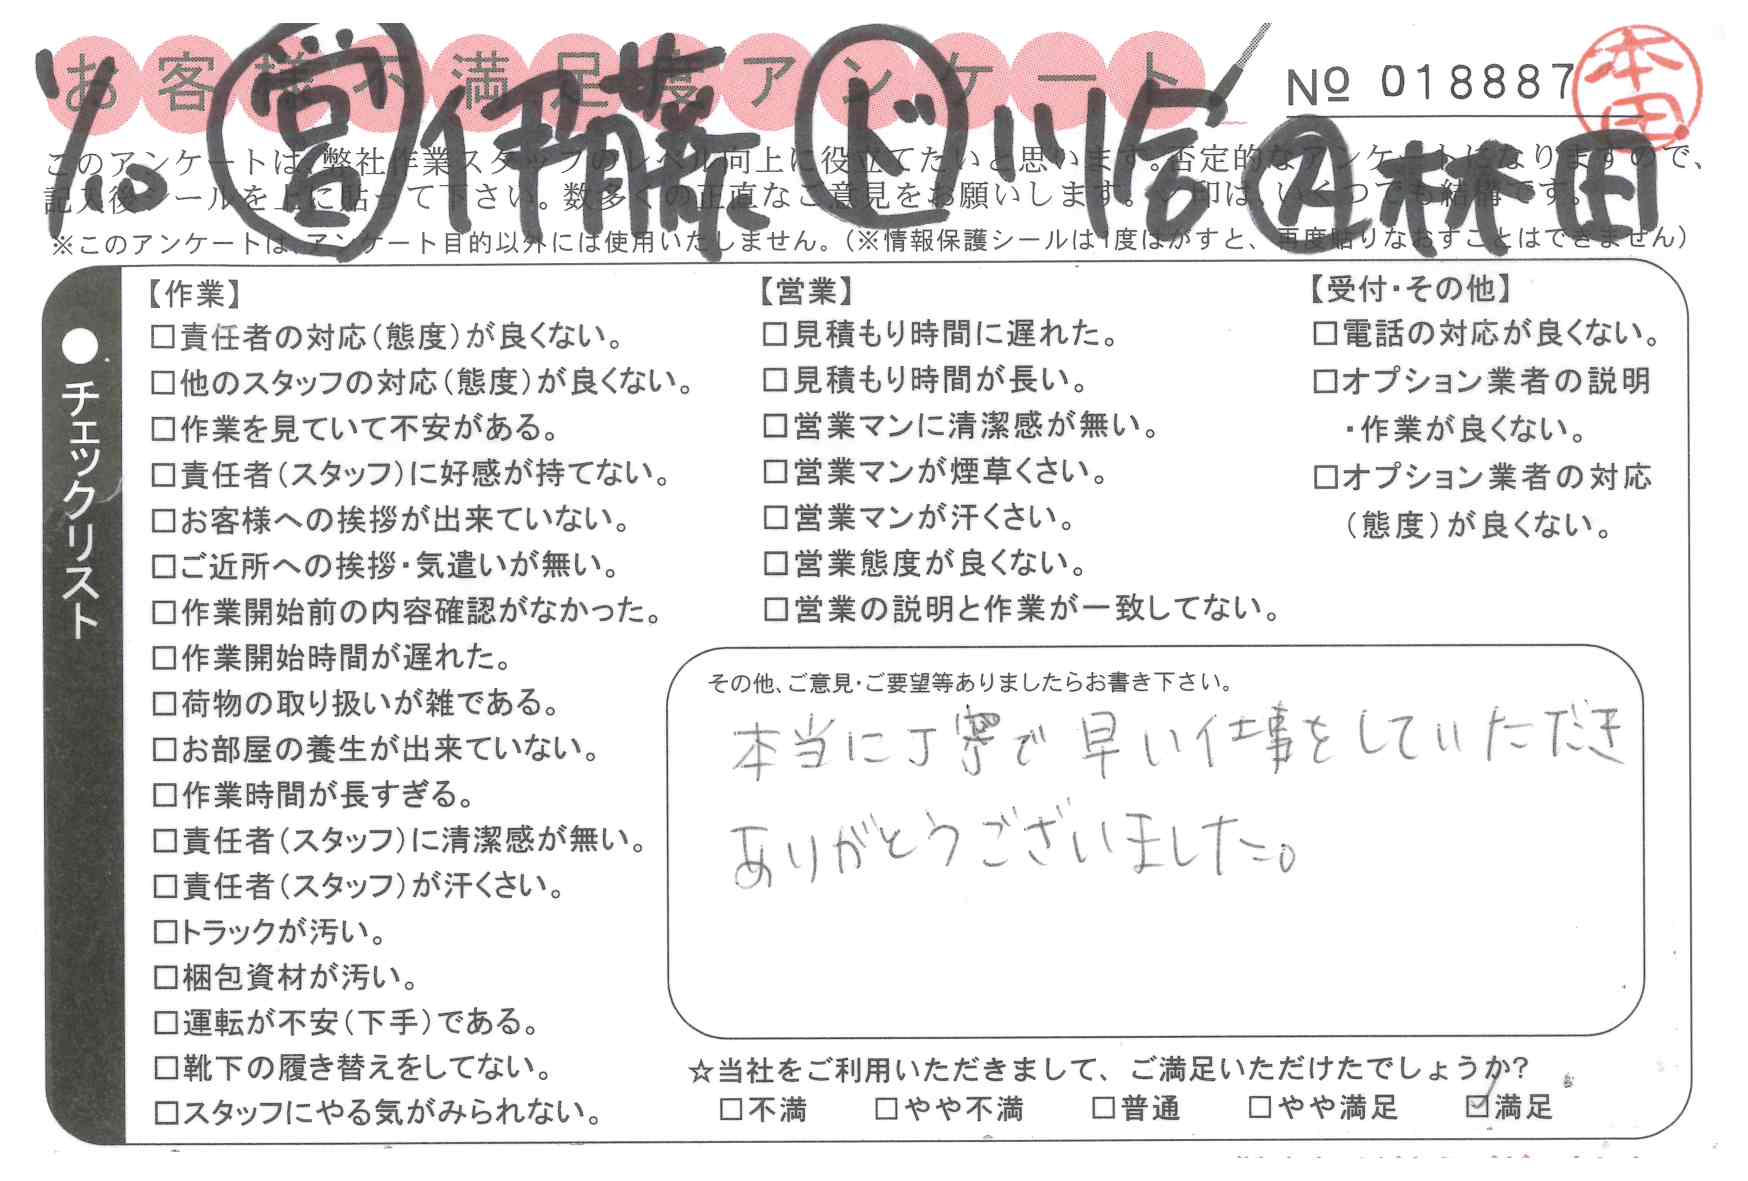 お客様不満足度アンケート
№ 018887
本田
営 伊藤 ド 川合 林田
このアンケートは、弊社作業スタッフのレベル向上に役立てたいと思います。否定的なアンケートになりますので、
記入後シールを上に貼って下さい。数多くの正直なご意見をお願いします。レ印は、いくつでも結構です。
※このアンケートは、アンケート目的以外には使用いたしません。(※情報保護シールは1度はがすと、再度貼りなおすことはできません)
●チェックリスト
【作業】
□責任者の対応(態度)が良くない。
□他のスタッフの対応(態度)が良くない。
□作業を見ていて不安がある。
□責任者(スタッフ)に好感が持てない。
□お客様への挨拶が出来ていない。
□ご近所への挨拶・気遣いが無い。
□作業開始前の内容確認がなかった。
□作業開始時間が遅れた。
□荷物の取り扱いが雑である。
□お部屋の養生が出来ていない。
□作業時間が長すぎる。
□責任者(スタッフ)に清潔感が無い。
□責任者(スタッフ)が汗くさい。
□トラックが汚い。
□梱包資材が汚い。
□運転が不安(下手)である。
□靴下の履き替えをしてない。
□スタッフにやる気がみられない。
【営業】
□見積もり時間に遅れた。
□見積もり時間が長い。
□営業マンに清潔感が無い。
□営業マンが煙草くさい。
□営業マンが汗くさい。
□営業態度が良くない。
□営業の説明と作業が一致してない。
【受付・その他】
□電話の対応が良くない。
□オプション業者の説明
・作業が良くない。
□オプション業者の対応
(態度)が良くない。
その他、ご意見・ご要望等ありましたらお書き下さい。
本当に丁寧で早い仕事をしていただき
ありがとうございました。
☆当社をご利用いただきまして、ご満足いただけたでしょうか?
□不満 □やや不満 □普通 □やや満足 ☑満足